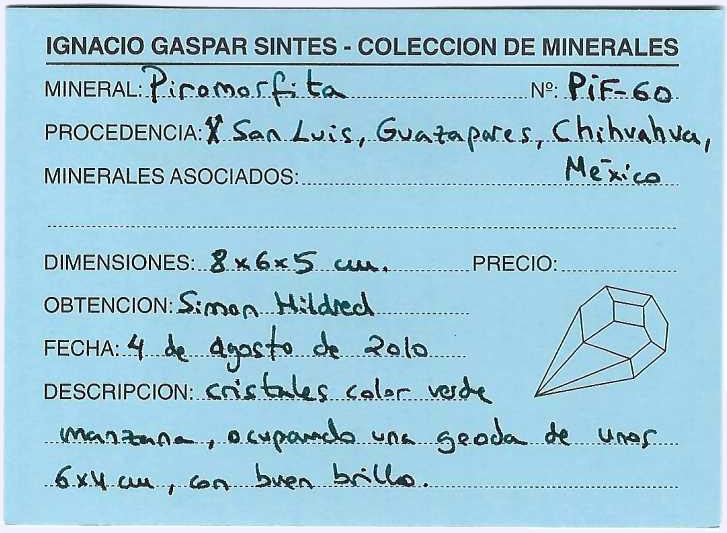 IGNACIO GASPAR SINTES - COLECCION DE MINERALES
MINERAL: Piromorfita Nº: PiF-60
PROCEDENCIA: San Luis, Guazapares, Chihuahua,
México
MINERALES ASOCIADOS:
DIMENSIONES: 8x6x5 cm. PRECIO:
OBTENCION: Simon Hildred
FECHA: 4 de agosto de 2010
DESCRIPCION: cristales color verde
manzana, ocupando una geoda de unos
6x4 cm, con buen brillo.